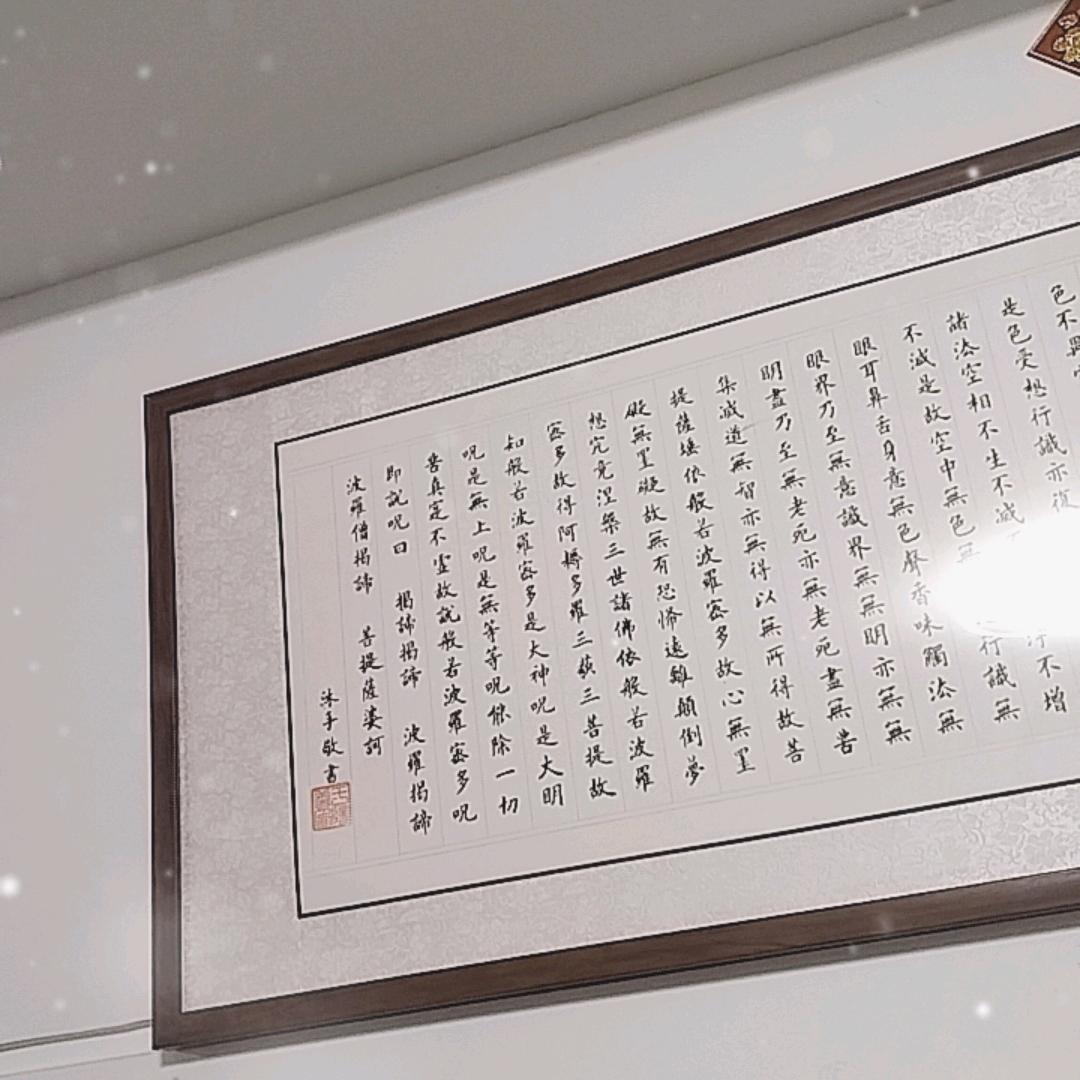 色不異
是色受想行識亦復
諸法空相不生不滅
淨不增
不減是故空中無色無
行識無
眼耳鼻舌身意無色聲香味觸法無
眼界乃至無意識界無無明亦無無
明盡乃至無老死亦無老死盡無苦
集滅道無智亦無得以無所得故菩
提薩埵依般若波羅蜜多故心無罣
礙無罣礙故無有恐怖遠離顛倒夢
想究竟涅槃三世諸佛依般若波羅
蜜多故得阿耨多羅三藐三菩提故
知般若波羅蜜多是大神呪是大明
呪是無上呪是無等等呪能除一切
苦真實不虛故說般若波羅蜜多呪
即說呪曰 揭諦揭諦 波羅揭諦
波羅僧揭諦 菩提薩婆訶
沐手敬書